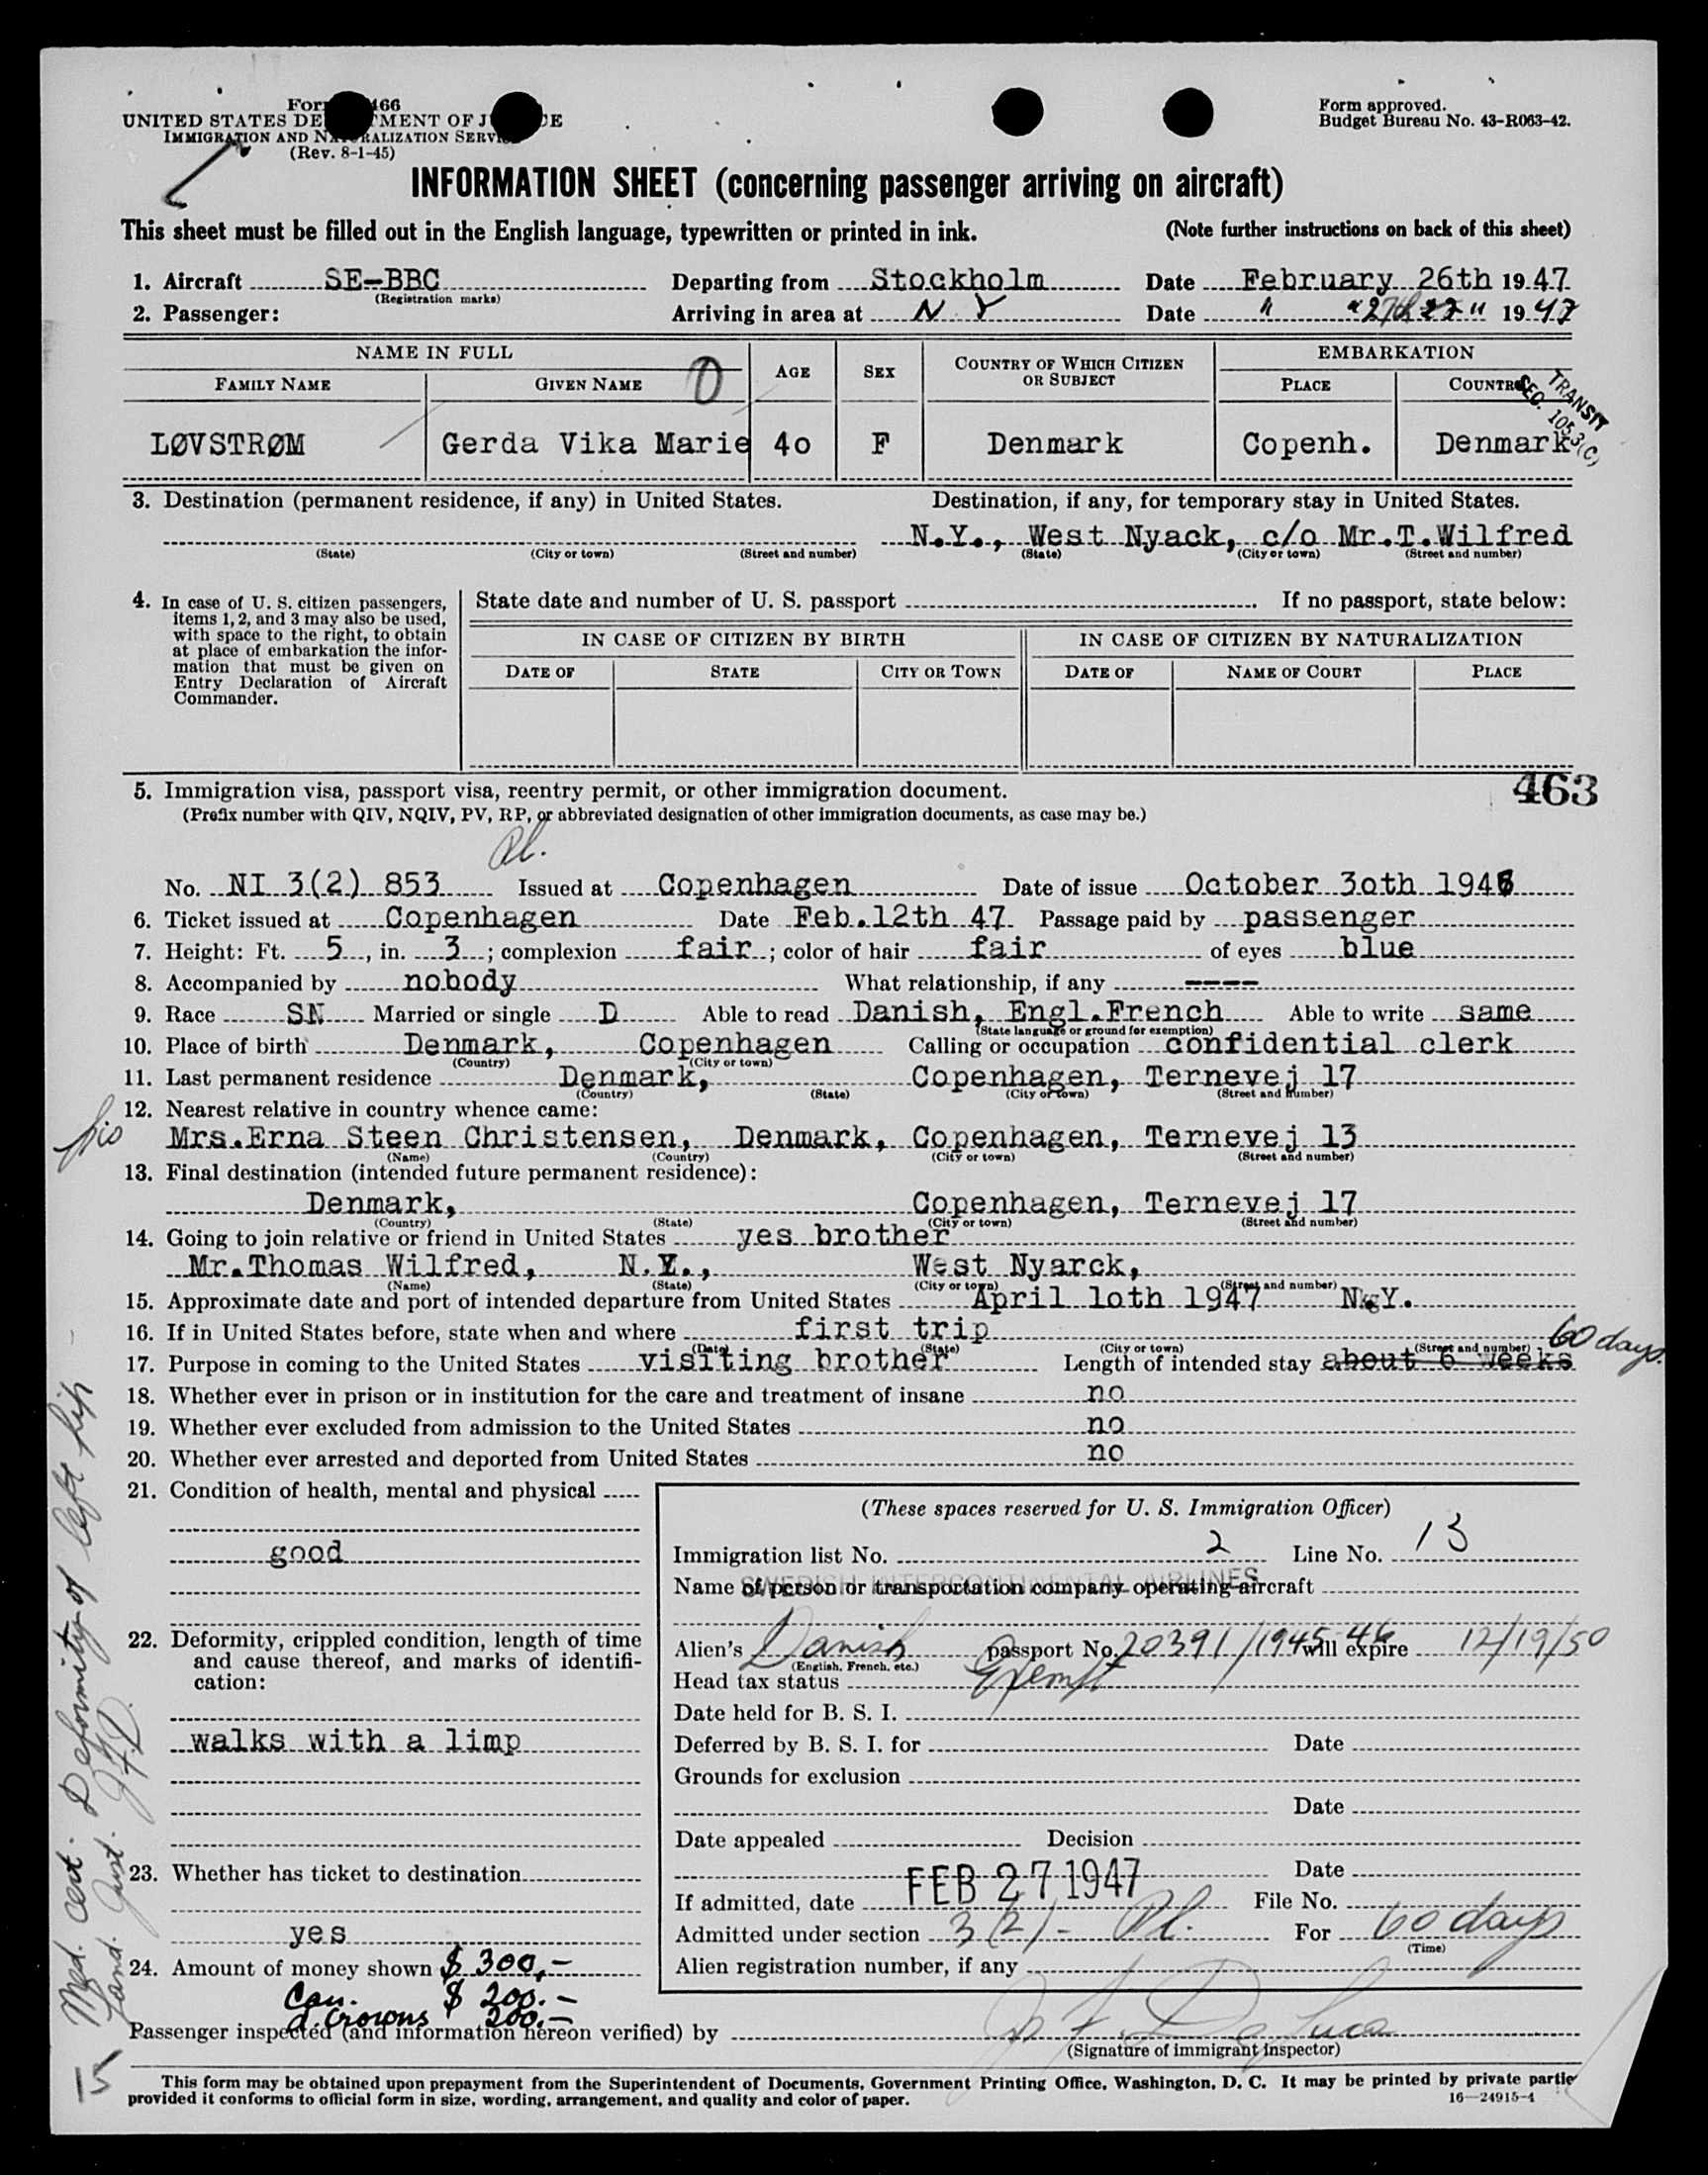 Form 466
UNITED STATES DE MENT OF J E
IMMIGRATION AND NATURALIZATION SERVICE
(Rev. 8-1-45)
Form approved.
Budget Bureau No. 43-R063-42.
INFORMATION SHEET (concerning passenger arriving on aircraft)
This sheet must be filled out in the English language, typewritten or printed in ink. (Note further instructions on back of this sheet)
1. Aircraft SE-BBC Departing from Stockholm Date February 26th 1947
(Registration marks)
2. Passenger: Arriving in area at N Y Date " " 27th " 1947
NAME IN FULL AGE SEX COUNTRY OF WHICH CITIZEN OR SUBJECT EMBARKATION
FAMILY NAME GIVEN NAME PLACE COUNTRY
0
TRANSIT
SEC. 105.3(C)
LØVSTRØM Gerda Vika Marie 4o F Denmark Copenh. Denmark
3. Destination (permanent residence, if any) in United States. Destination, if any, for temporary stay in United States.
N.Y., West Nyack, c/o Mr.T.Wilfred
(State) (City or town) (Street and number) (State) (City or town) (Street and number)
4. In case of U. S. citizen passengers, items 1, 2, and 3 may also be used, with space to the right, to obtain at place of embarkation the information that must be given on Entry Declaration of Aircraft Commander.
State date and number of U. S. passport If no passport, state below:
IN CASE OF CITIZEN BY BIRTH IN CASE OF CITIZEN BY NATURALIZATION
DATE OF STATE CITY OR TOWN DATE OF NAME OF COURT PLACE
463
5. Immigration visa, passport visa, reentry permit, or other immigration document.
(Prefix number with QIV, NQIV, PV, RP, or abbreviated designation of other immigration documents, as case may be.)
Pl.
No. NI 3(2) 853 Issued at Copenhagen Date of issue October 3oth 1946
6. Ticket issued at Copenhagen Date Feb.12th 47 Passage paid by passenger
7. Height: Ft. 5, in. 3; complexion fair; color of hair fair of eyes blue
8. Accompanied by nobody What relationship, if any ----
9. Race SN Married or single D Able to read Danish, Engl.French Able to write same
(State language or ground for exemption)
10. Place of birth Denmark, Copenhagen Calling or occupation confidential clerk
(Country) (City or town)
11. Last permanent residence Denmark, Copenhagen, Ternevej 17
(Country) (State) (City or town) (Street and number)
12. Nearest relative in country whence came:
sis Mrs.Erna Steen Christensen, Denmark, Copenhagen, Ternevej 13
(Name) (Country) (City or town) (Street and number)
13. Final destination (intended future permanent residence):
Denmark, Copenhagen, Ternevej 17
(Country) (State) (City or town) (Street and number)
14. Going to join relative or friend in United States yes brother
Mr.Thomas Wilfred, N.Y., West Nyarck,
(Name) (State) (City or town) (Street and number)
15. Approximate date and port of intended departure from United States April 1oth 1947 N.Y.
16. If in United States before, state when and where first trip
(Date) (State) (City or town) (Street and number)
60 days
17. Purpose in coming to the United States visiting brother Length of intended stay about 6 weeks
18. Whether ever in prison or in institution for the care and treatment of insane no
19. Whether ever excluded from admission to the United States no
20. Whether ever arrested and deported from United States no
21. Condition of health, mental and physical
good
22. Deformity, crippled condition, length of time and cause thereof, and marks of identification:
walks with a limp
23. Whether has ticket to destination
yes
24. Amount of money shown $ 300,-
Can. $ 200.-
d.crowns 200.-
(These spaces reserved for U. S. Immigration Officer)
Immigration list No. 2 Line No. 13
Name of person or transportation company operating aircraft
SWEDISH INTERCONTINENTAL AIRLINES
Alien's Danish passport No. 20391/1945-46 will expire 12/19/50
(English, French, etc.)
Head tax status Exempt
Date held for B. S. I.
Deferred by B. S. I. for Date
Grounds for exclusion
Date
Date appealed Decision
Date
If admitted, date FEB 27 1947 File No.
Admitted under section 3(2)- Pl. For 60 days
(Time)
Alien registration number, if any
Passenger inspected (and information hereon verified) by J. F. De Luca
(Signature of immigrant inspector)
Med. cert. Deformity of left hip
15
This form may be obtained upon prepayment from the Superintendent of Documents, Government Printing Office, Washington, D. C. It may be printed by private partie
provided it conforms to official form in size, wording, arrangement, and quality and color of paper. 16—24915-4